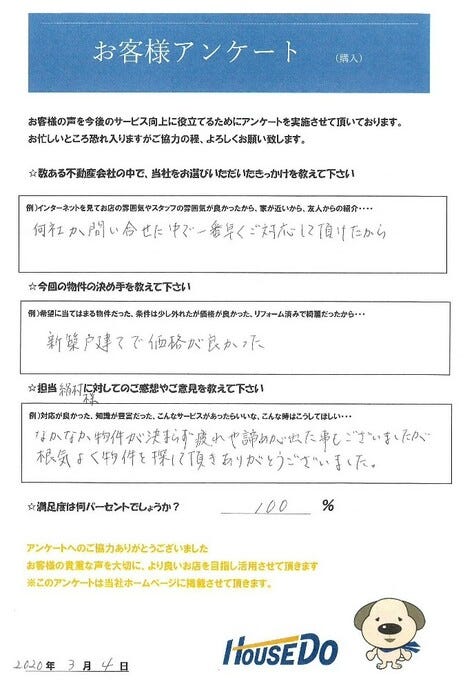 お客様アンケート （購入）
お客様の声を今後のサービス向上に役立てるためにアンケートを実施させて頂いております。
お忙しいところ恐れ入りますがご協力の程、よろしくお願い致します。
☆数ある不動産会社の中で、当社をお選びいただいたきっかけを教えて下さい
例）インターネットを見てお店の雰囲気やスタッフの雰囲気が良かったから、家が近いから、友人からの紹介・・・・
何社か問い合せた中で一番早くご対応して頂けたから
☆今回の物件の決め手を教えて下さい
例）希望に当てはまる物件だった、条件は少し外れたが価格が良かった、リフォーム済みで綺麗だったから・・・
新築戸建てで価格が良かった
☆担当 村様に対してのご感想やご意見を教えて下さい
例）対応が良かった、知識が豊富だった、こんなサービスがあったらいいな、こんな時はこうしてほしい・・・
なかなか物件が決まらず疲れや諦めが出た事もございましたが
根気よく物件を探して頂きありがとうございました。
☆満足度は何パーセントでしょうか？ 100 %
アンケートへのご協力ありがとうございました
お客様の貴重な声を大切に、より良いお店を目指し活用させて頂きます
※このアンケートは当社ホームページに掲載させて頂きます。
HouseDo
2020年 3月 4日